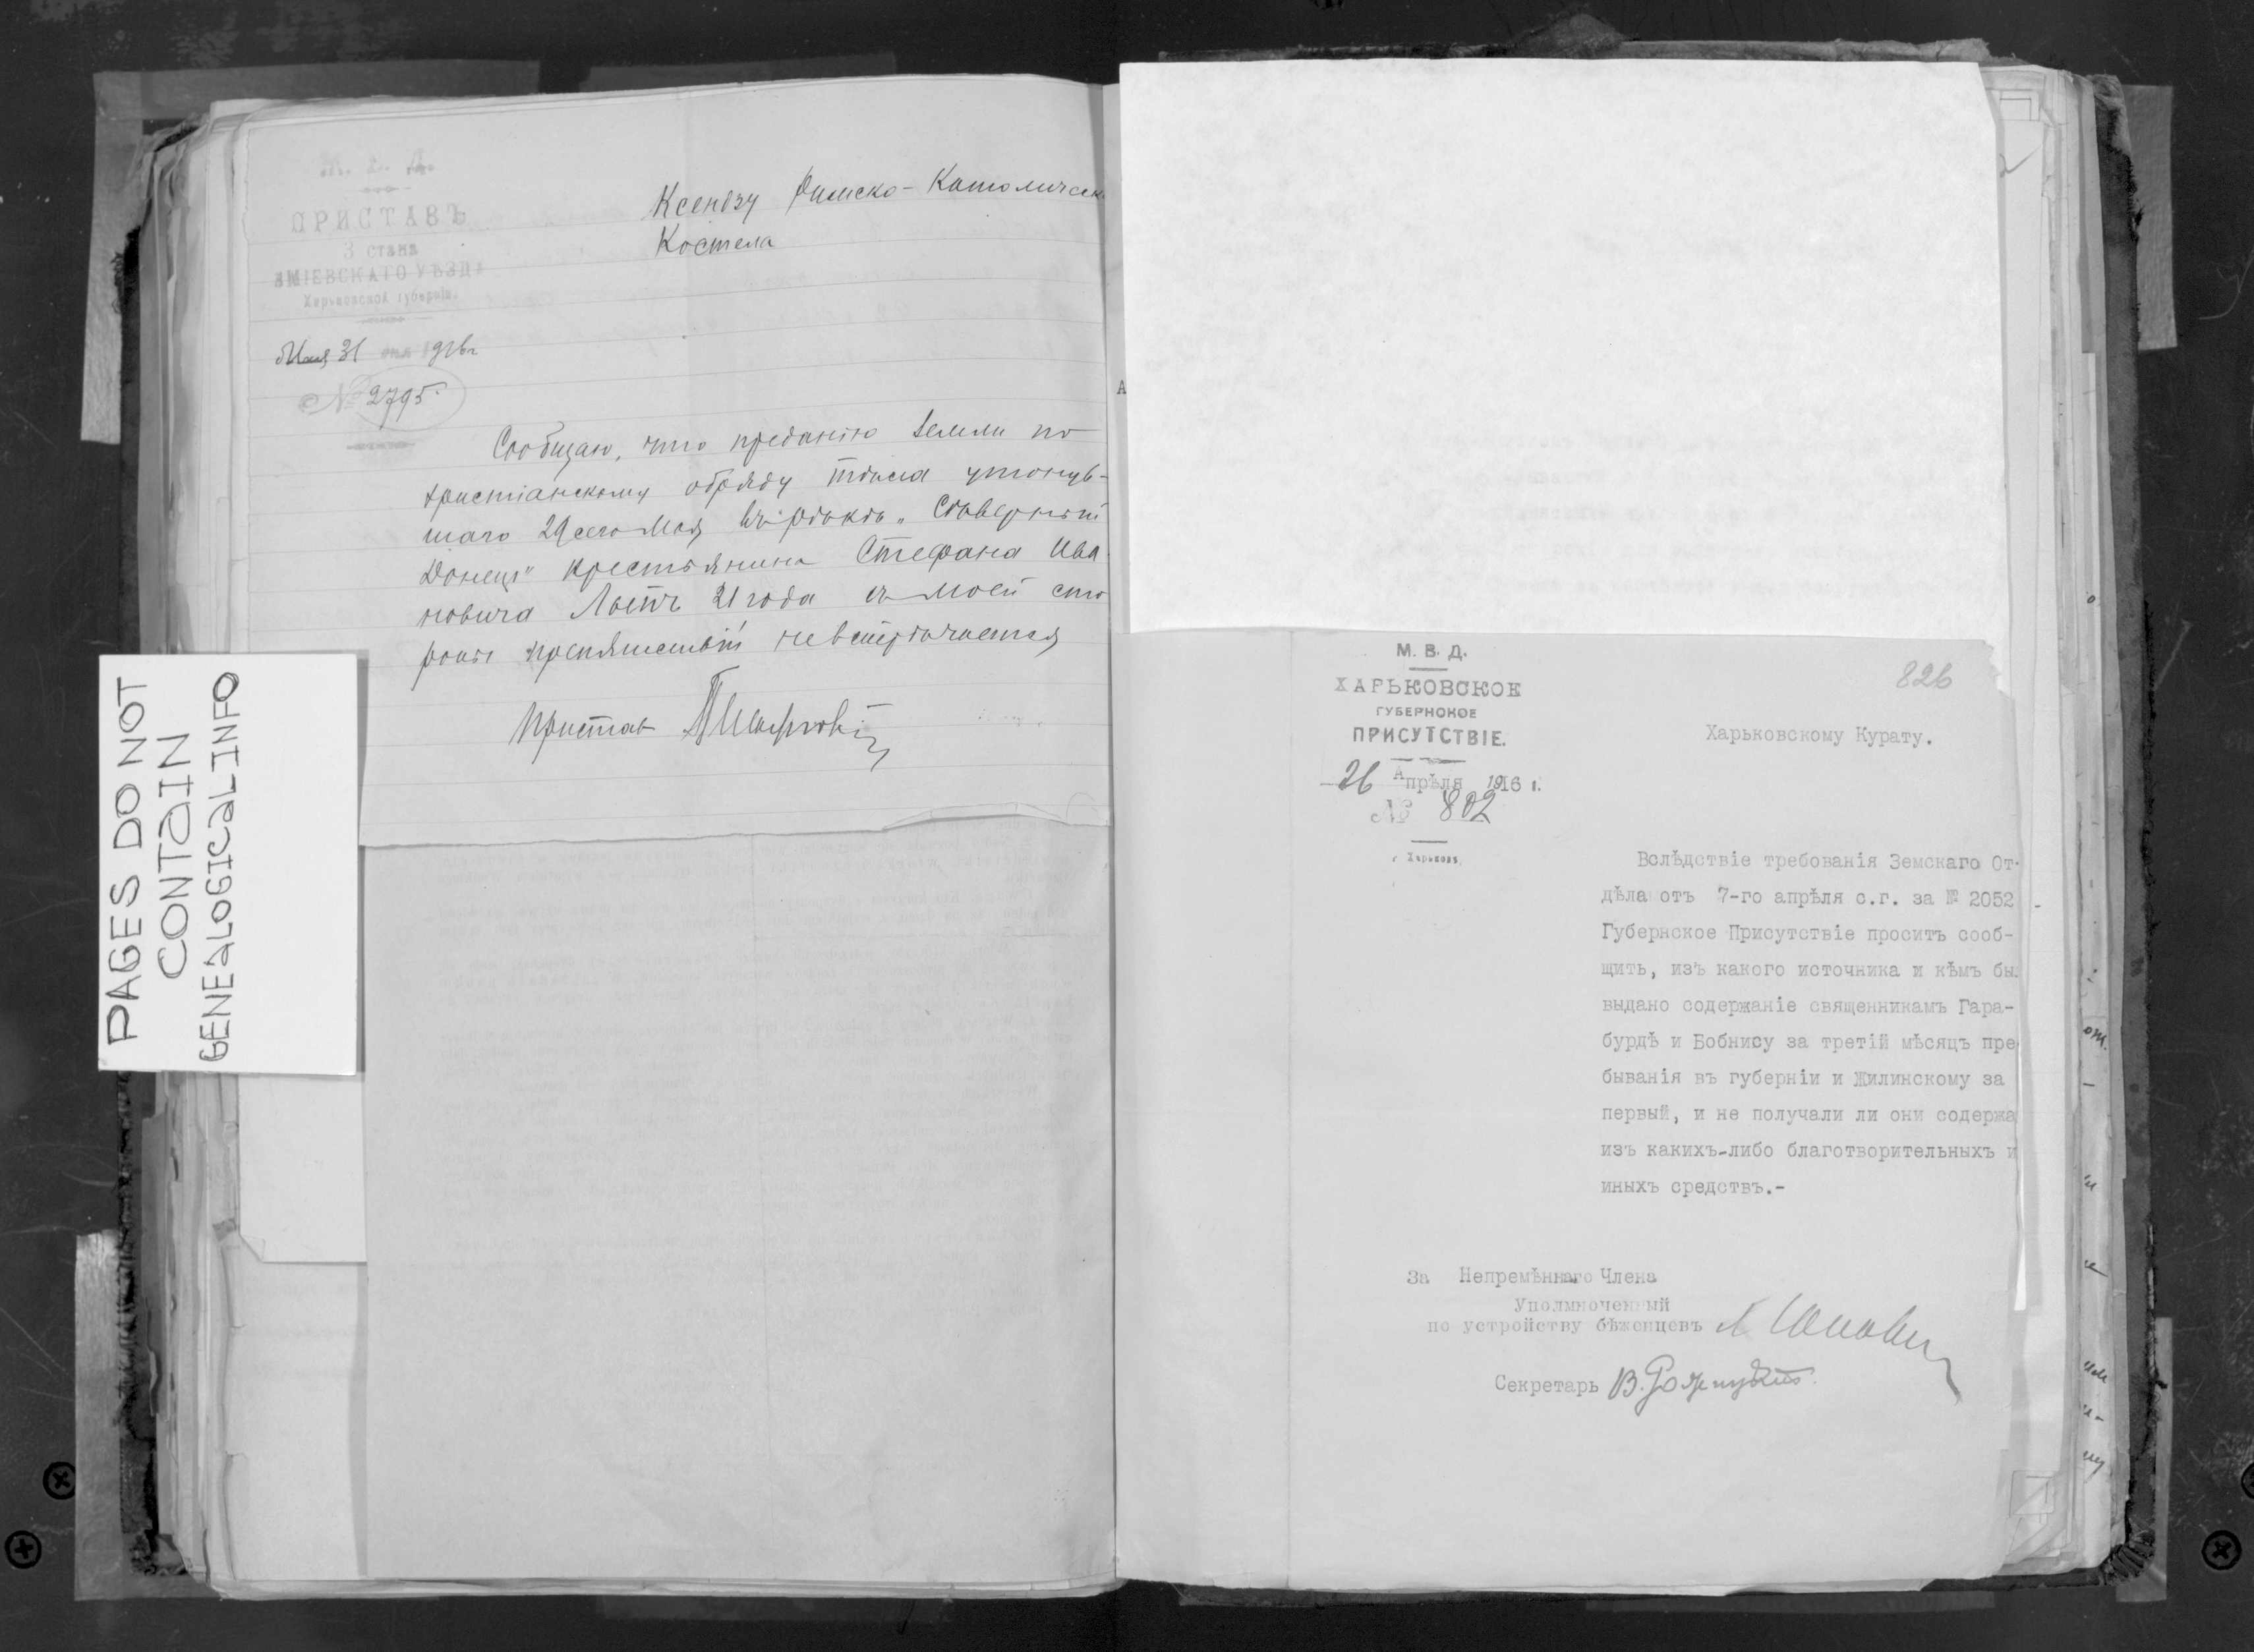 М. В. Д.
ПРИСТАВЪ
3 стана
ЗМІЕВСКАГО УѢЗДА
Харьковской губерніи.
Мая 31 дня 1916 г
№ 2795
Ксендзу Римско-Католическ
Костела
Сообщаю, что преданію земли по
христіанскому обряду тѣла утонув-
шаго 29 сего Мая въ рѣкѣ „Сѣверный
Донецъ" крестьянина Стефана Ива
новича 21 года съ моей сто
роны препятствій невстрѣчается
Приставъ
PAGES DO NOT
CONTAIN
GENEALOGICAL INFO
А
М. В. Д.
ХАРЬКОВСКОЕ
ГУБЕРНСКОЕ
ПРИСУТСТВІЕ.
26 Апрѣля 1916 г.
№ 802
г. Харьковъ
826
Харьковскому Курату.
Вслѣдствіе требованія Земскаго От-
дѣла отъ 7-го апрѣля с.г. за № 2052
Губернское Присутствіе проситъ сооб-
щить, изъ какого источника и кѣмъ бы
выдано содержаніе священникамъ Гара-
бурдѣ и Бобнису за третій мѣсяцъ пре
быванія въ губерніи и Жилинскому за
первый, и не получали ли они содержа
изъ какихъ-либо благотворительныхъ и
иныхъ средствъ.-
За Непремѣннаго Члена
Уполмноченный
по устройству бѣженцевъ
Секретарь В.